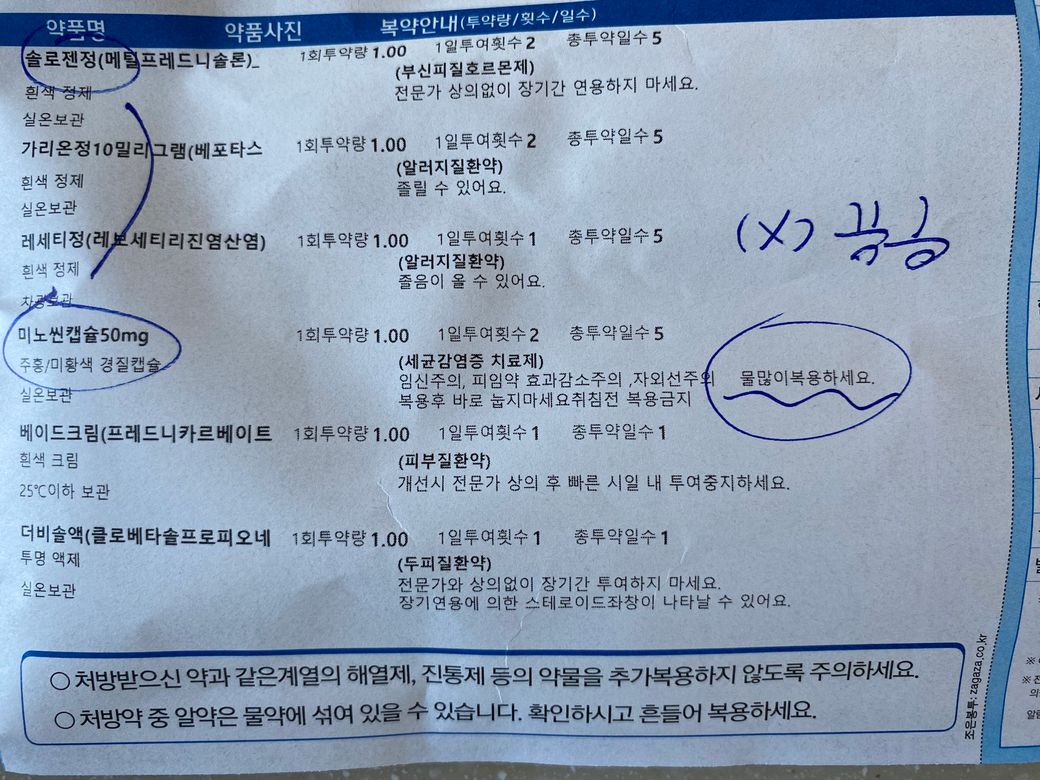 약품명 약품사진 복약안내(투약량/횟수/일수)
솔로젠정(메틸프레드니솔론)_ 1회투약량 1.00 1일투여횟수 2 총투약일수 5
(부신피질호르몬제)
흰색 정제 전문가 상의없이 장기간 연용하지 마세요.
실온보관
가리온정10밀리그램(베포타스 1회투약량 1.00 1일투여횟수 2 총투약일수 5
(알러지질환약)
흰색 정제 졸릴 수 있어요.
실온보관
레세티정(레보세티리진염산염) 1회투약량 1.00 1일투여횟수 1 총투약일수 5
(알러지질환약)
흰색 정제 졸음이 올 수 있어요.
차광보관
(X)
미노씬캡슐50mg 1회투약량 1.00 1일투여횟수 2 총투약일수 5
(세균감염증 치료제)
주홍/미황색 경질캡슐 임신주의, 피임약 효과감소주의 ,자외선주의 물많이복용하세요.
실온보관 복용후 바로 눕지마세요취침전 복용금지
베이드크림(프레드니카르베이트 1회투약량 1.00 1일투여횟수 1 총투약일수 1
흰색 크림 (피부질환약)
25℃이하 보관 개선시 전문가 상의 후 빠른 시일 내 투여중지하세요.
더비솔액(클로베타솔프로피오네 1회투약량 1.00 1일투여횟수 1 총투약일수 1
투명 액제 (두피질환약)
실온보관 전문가와 상의없이 장기간 투여하지 마세요.
장기연용에 의한 스테로이드좌창이 나타날 수 있어요.
○ 처방받으신 약과 같은계열의 해열제, 진통제 등의 약물을 추가복용하지 않도록 주의하세요.
○ 처방약 중 알약은 물약에 섞여 있을 수 있습니다. 확인하시고 흔들어 복용하세요.
조은봉투: zagaza.co.kr